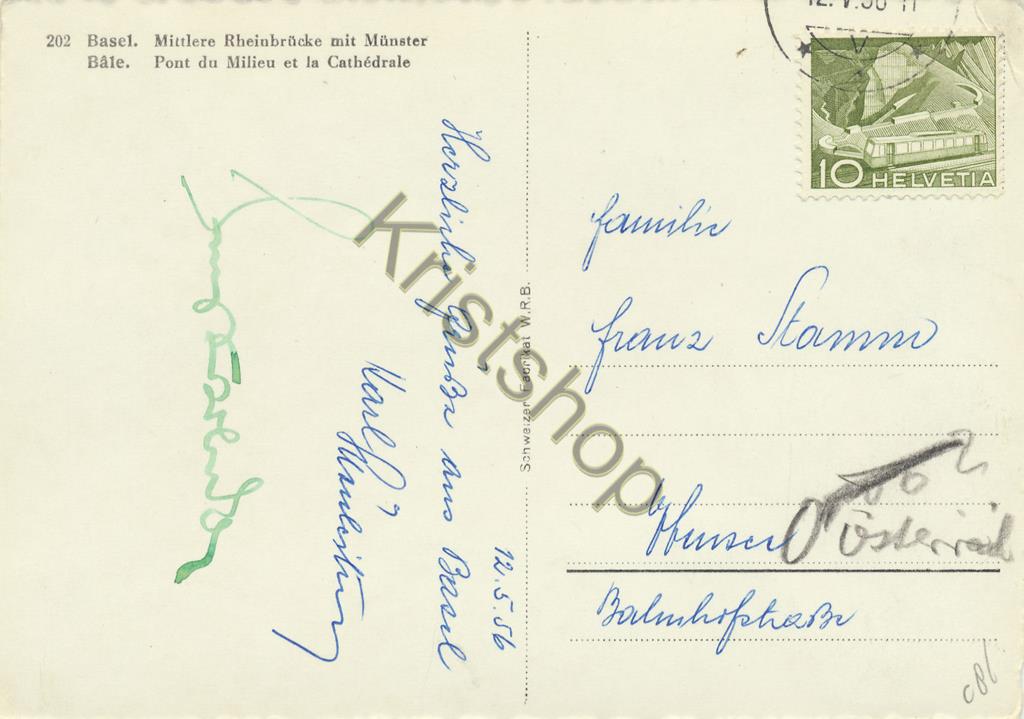 202 Basel. Mittlere Rheinbrücke mit Münster
Bâle. Pont du Milieu et la Cathédrale
12. V. 56 - 11
10 HELVETIA
Herzliche Grüße aus Basel
12.5.56
Karl
Schweizer Fabrikat W.R.B.
Familie
Franz Stamm
Österreich
Bahnhofstraße
Kristshop